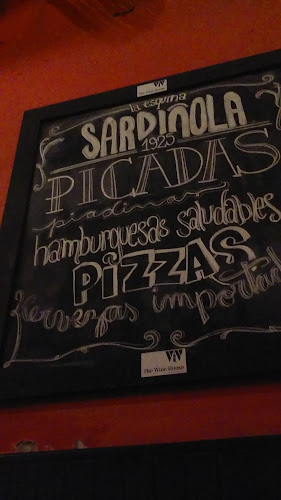 la esquina
SARDIÑOLA
1925
PICADAS
piadinas
hamburguesas saludables
PIZZAS
Cervezas importad
The Wine House